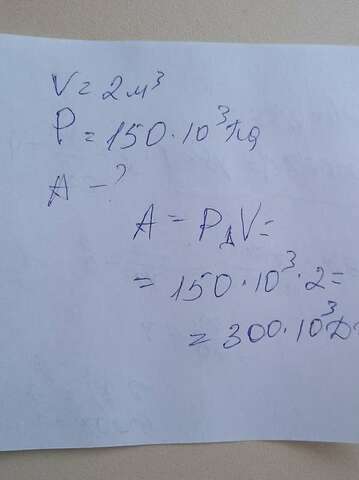 V = 2 м³
P = 150 · 10³ Па
A – ?
A = PΔV =
= 150 · 10³ · 2 =
= 300 · 10³ Дж